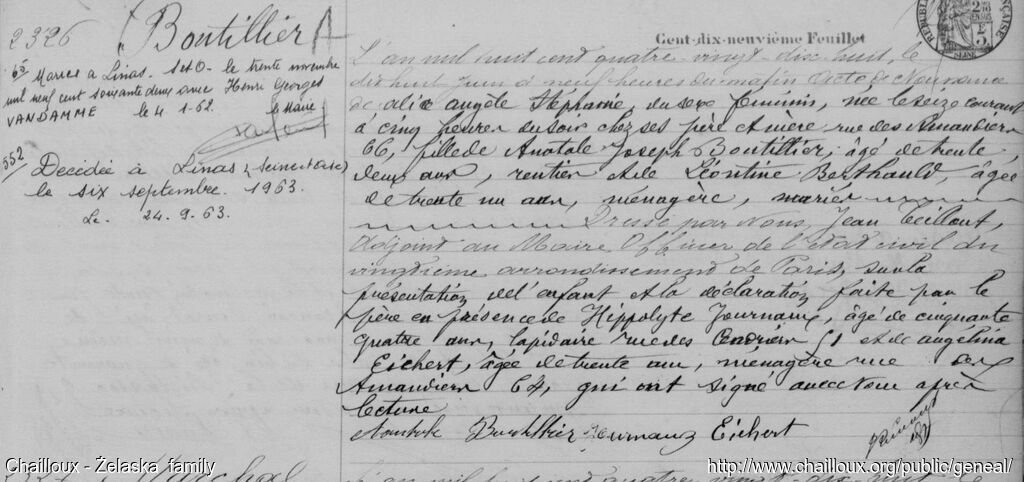 2326
Boutillier A
Mariée à Linas. S et O. le trente novembre
mil neuf cent soixante deux avec Henri Georges
VANDAMME le 4. 1.62. le Maire
552
Décédée à Linas (Seine et Oise)
le six septembre. 1963.
Le. 24.9.63.
Cent-dix-neuvième Feuillet
L'an mil huit cent quatre-vingt-dix huit, le
dix huit Juin à neuf heures du matin Acte de Naissance
de Alice Angèle Stéphanie, du sexe féminin, née le seize courant
à cinq heures du soir chez ses père et mère rue des Amandiers
66, fille de Anatole Joseph Boutillier, âgé de trente
deux ans, rentier et de Léontine Berthauld, âgée
de trente un ans, ménagère, mariés
Dressé par Nous, Jean
Adjoint au Maire Officier de l'état civil du
vingtième arrondissement de Paris, sur la
présentation de l'enfant et la déclaration faite par le
père en présence de Hippolyte Journaux, âgé de cinquante
quatre ans, lapidaire rue des Cendriers 51 et de Angélina
Eichert, âgée de trente ans, ménagère rue des
Amandiers 64, qui ont signé avec Nous après
lecture
Boutillier Journaux Eichert
Chailloux - Żelaska family
http://www.chailloux.org/public/geneal/